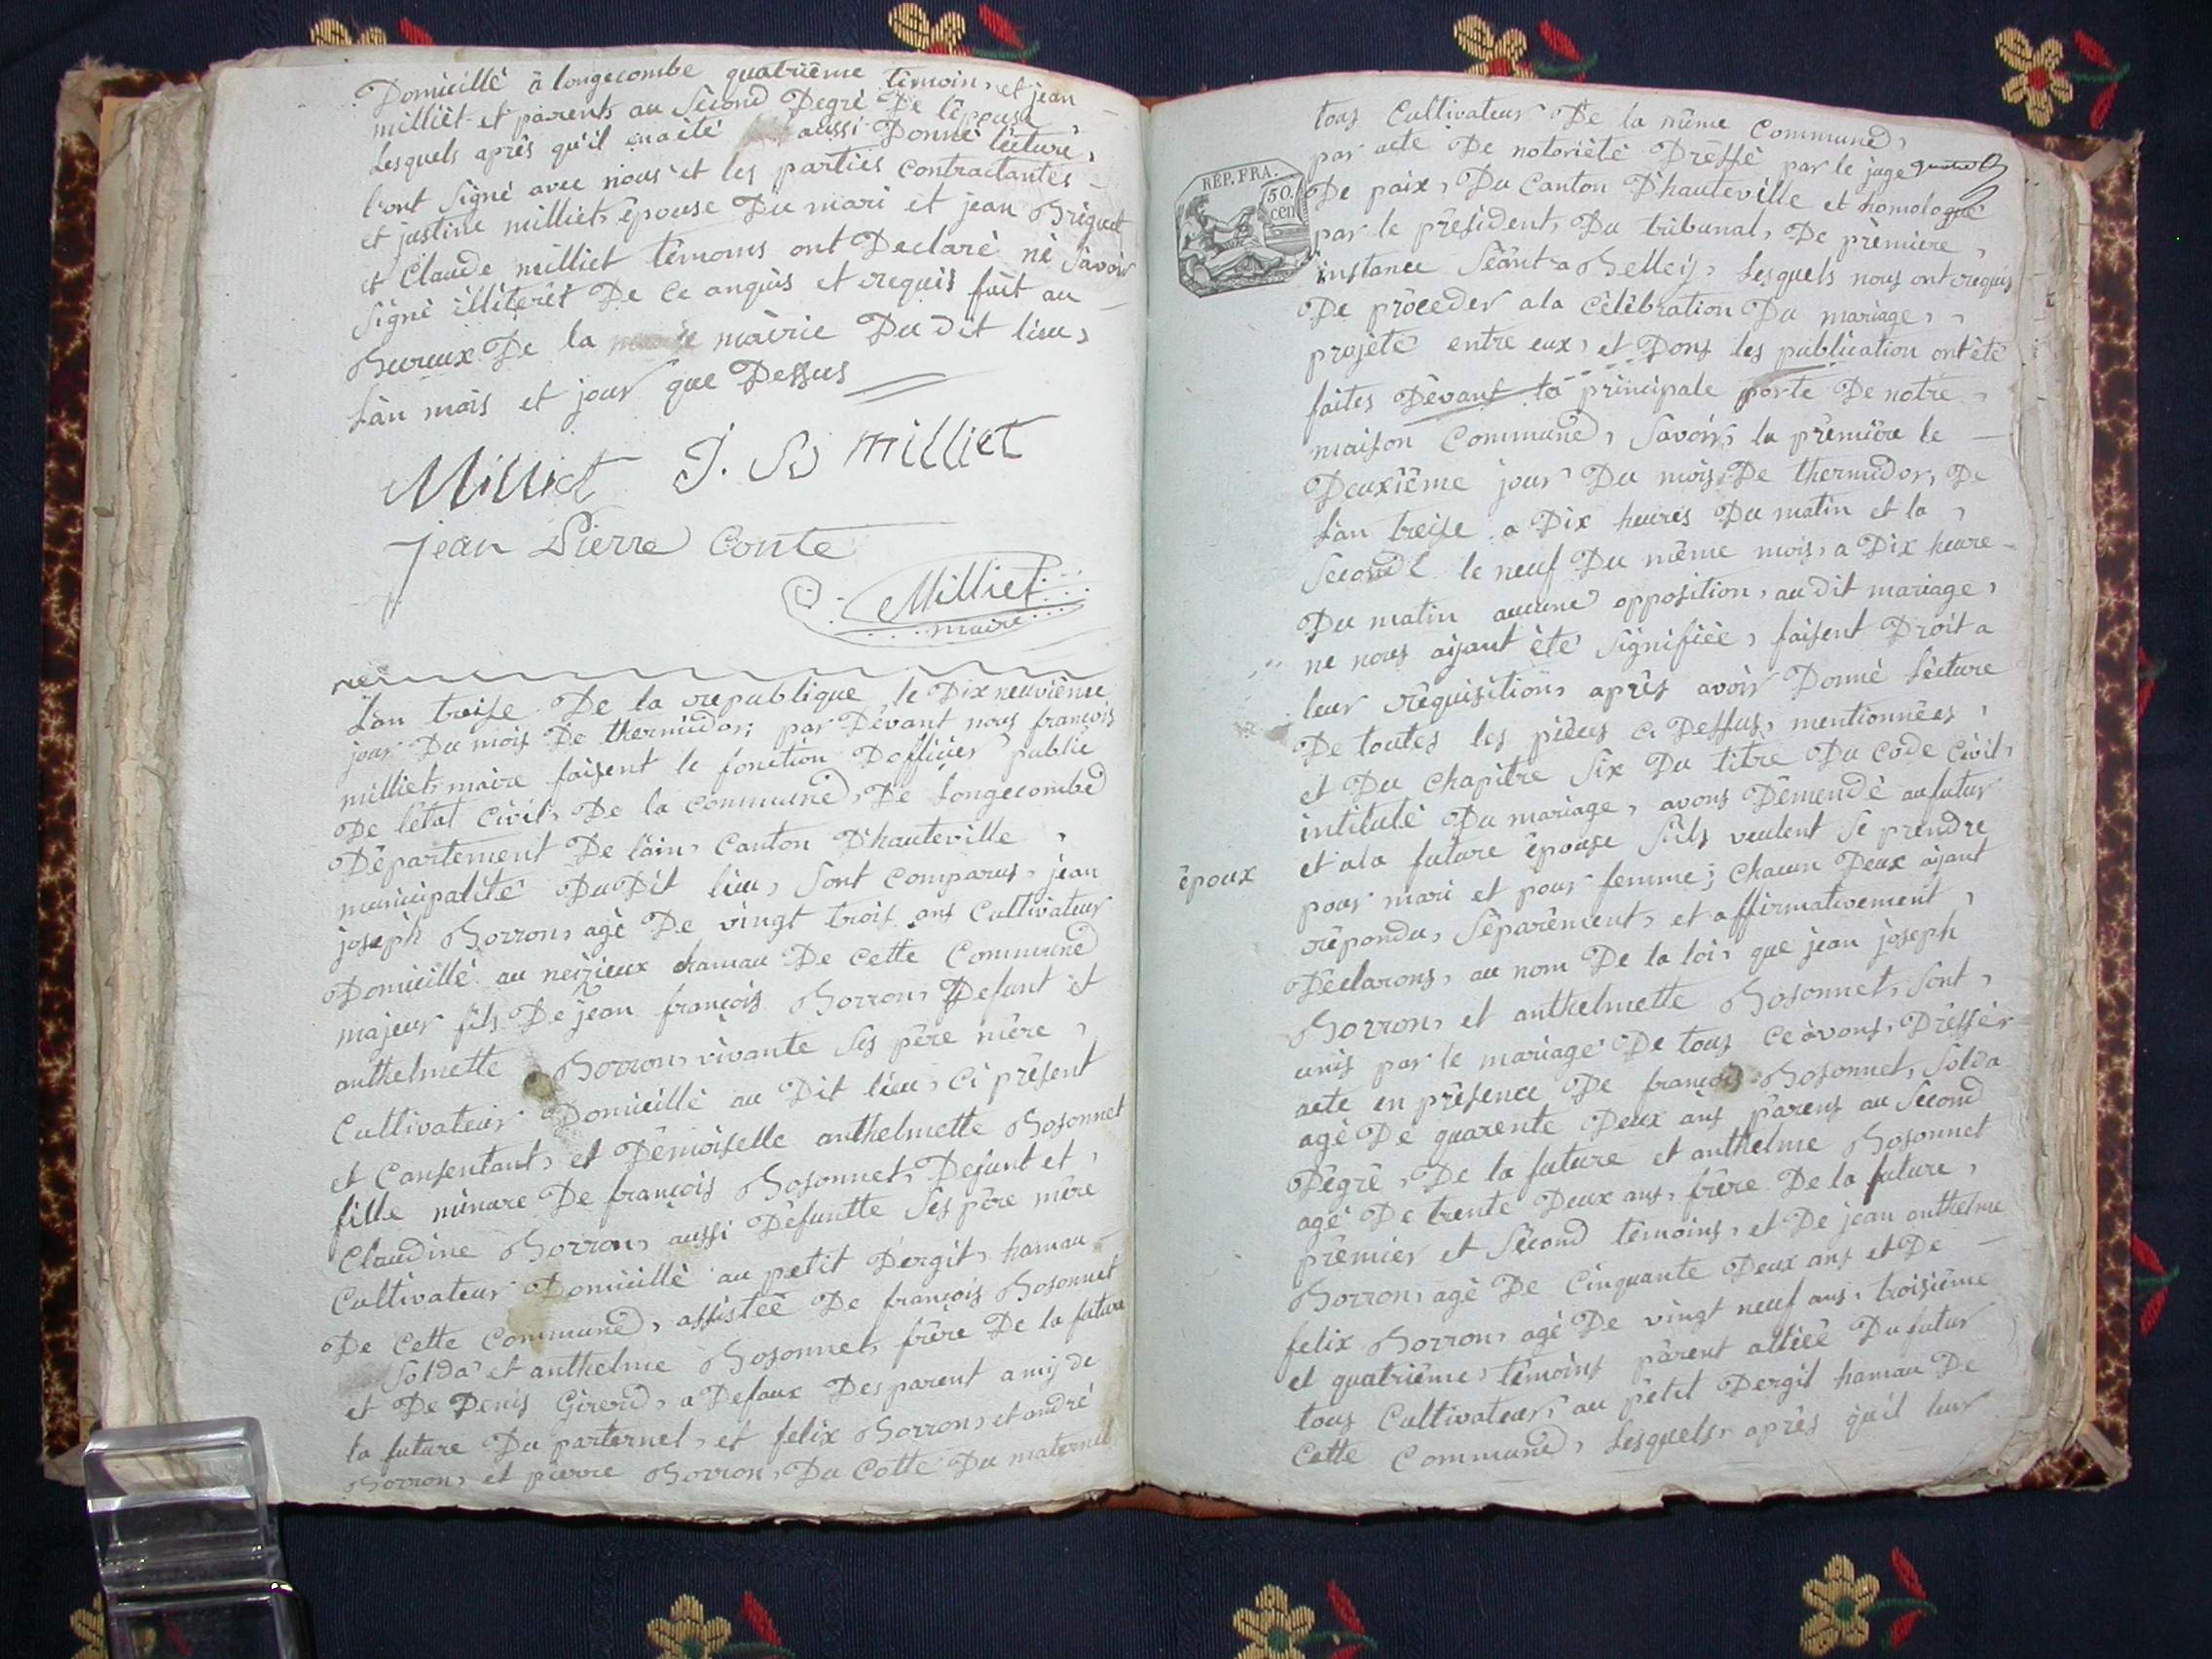 Domicillé à longecombe quatrième témoin, et jean
milliet et parents au Sécond Degré De lépouse
Lesquels après qu'il en a été aussi Donné lécture,
l'ont Signé avec nous et les partiés contractantes
et justine milliet, épouse Du mari et jean Briguet
et Claude milliet témoins ont Déclaré né Savoir
Signé illiterêt De ce anquis et requis fait au
Bureaux De la mairie Du dit lieu,
Làn mois et jour que Dessus
Milliet J. S milliet
jean Pierre Conte
Milliet
maire
Làn treise De la republique le Dix neuvième
jour Du mois De thermidor; par Dévant nous françois
milliet, maire faisent le fonction D'officier public
De létat Civil, De la Commune, De Longecombe
Département De láin, Canton D'hauteville,
municipalité DuDit lieu, Sont comparus, jean
joseph Borron, agé De vingt trois ans Cultivateur
Domicillé au neizieux hamau De cette Commune
majeur fils De jean françois Borron, Defunt et
anthelmette Borron, vivante Ses père mère,
Cultivateur Domicillé au Dit lieu, Ci présent
et Consentant, et Démoiselle anthelmette Bosonnet
fille minure De françois Bosonnet, Defunt et,
Claudine Borron, aussi Défuntte Ses père mère
Cultivateur Domicillé au petit Dergit, hamau
De Cette Commune, assistée De françois Bosonnet
Solda et anthelme Bosonnet, frère De la future
et De Denis Girerd, a Defaux Des parent amis de
la future Du parternel, et felix Borron, et andré
Borron, et pierre Borron, Du Cotte Du maternel
RÉP. FRA.
50.
cen
tous Cultivateur De la même Commune,
par acte De notoriété Dréssé par le juge
De paix, Du Canton D'hauteville et homologué
par le président, Du tribunal, De prémière,
instance Séant a Belley, Lesquels nous ont requis
De procéder a la Célébration Du mariage,
projété entre eux, et Dons les publication ont été
faites Dévant la principale porte De notre
maison Commune, Savoir, la prémière le
Deuxième jour Du mois De thermidor, De
Làn treise a Dix heures Du matin et la,
Seconde le neuf Du même mois, a Dix heure
Du matin aucune opposition, audit mariage,
ne nous aijant été Signifiée, faisent Droit a
leur réquisition, après avoir Donné Lécture
De toutes les pièces ci Dessus, mentionnées,
et Du Chapitre Six Du titre Du Code Civil,
intitulé Du mariage, avons Démendé au futur
époux et a la future épouse S'ils veulent Se prendre
pour mari et pour femme; Chacun Deux aijant
répondu, Séparément, et affirmativement,
Déclarons, au nom De la loi, que jean joseph
Borron, et anthelmette Bosonnet, Sont,
unis par le mariage De tous ce avons, Drésser
acte en présence De françois Bosonnet, Solda
agé De quarente Deux ans parens au Sécond
Dégré, De la future et anthelme Bosonnet
agé De trente Deux ans, frère De la future,
prémier et Sécond témoins, et De jean anthelme
Borron, agé De Cinquante Deux ans et De
felix Borron, agé De vingt neuf ans, troisième
et quatrième, témoins pârent alliéé Du futur
tous Cultivateur, au pétit Dergit hamau De
Cette Commune, Lesquels, après qu'il leur